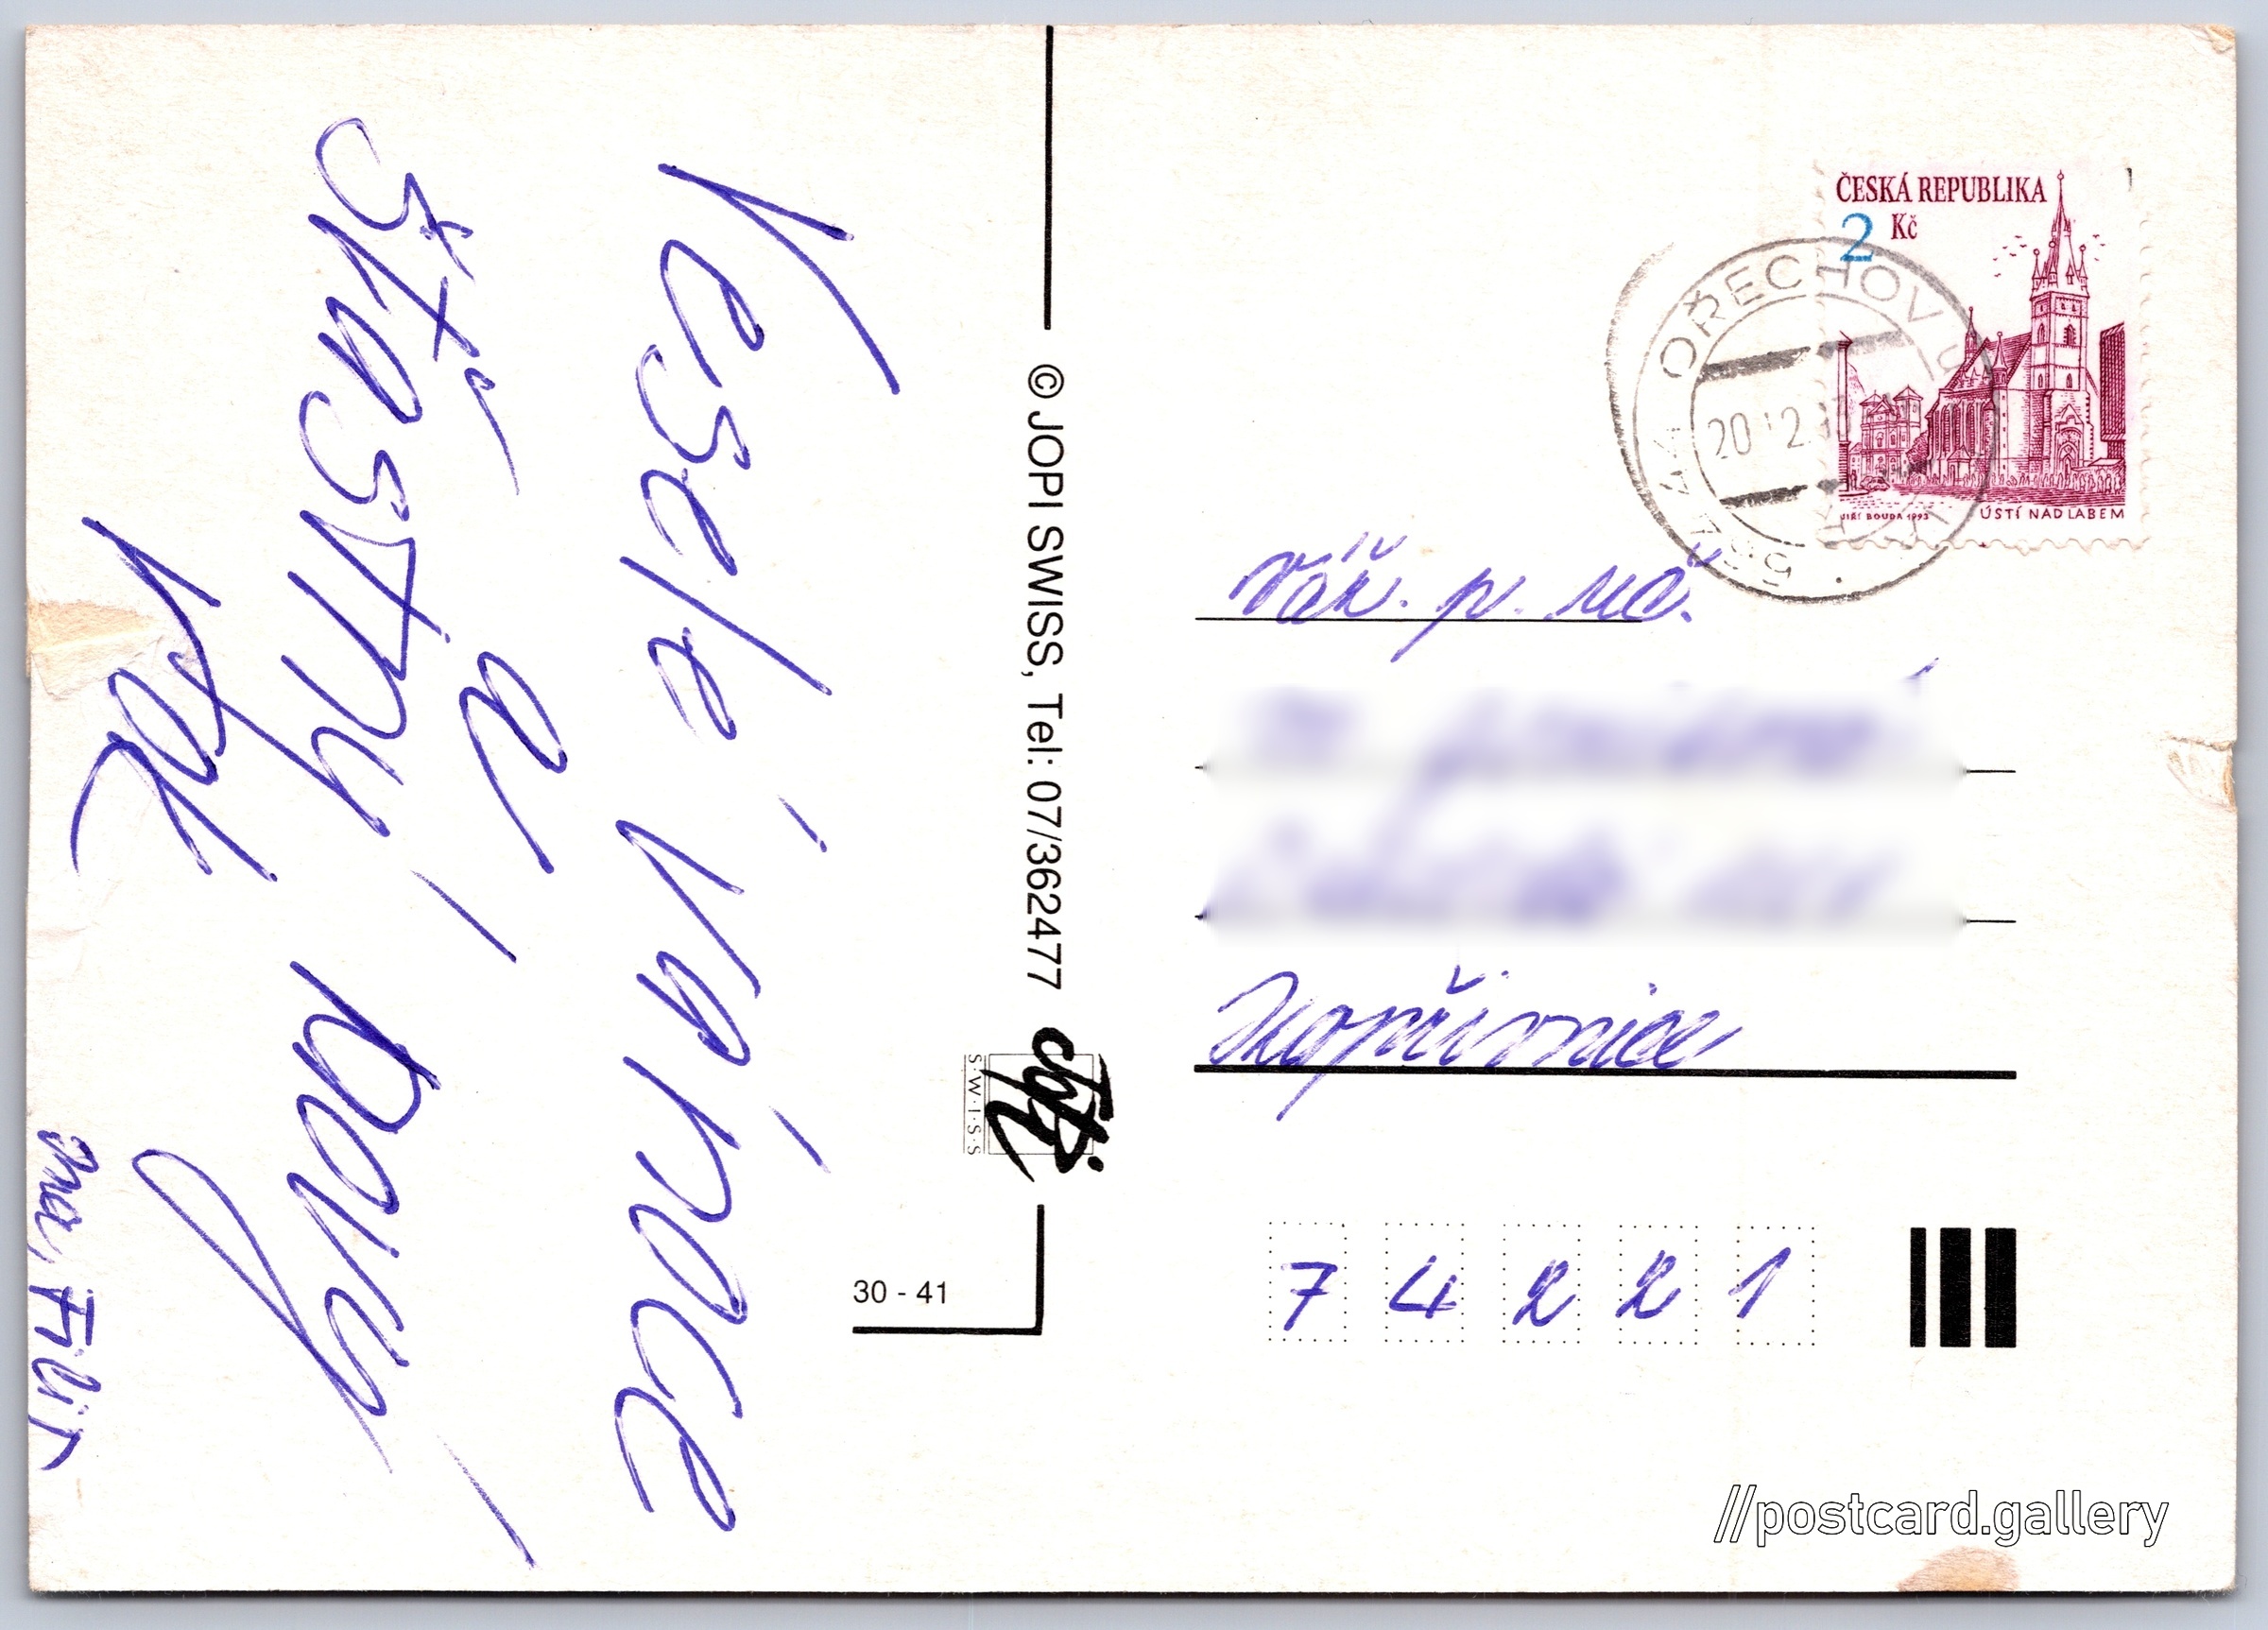 Veselé Vánoce
a
Šťastný nový
rok
Filip
© JOPI SWISS, Tel: 07/362477
Jopi
S·W·I·S·S
30 - 41
ČESKÁ REPUBLIKA
2 Kč
JIŘÍ BOUDA 1993
ÚSTÍ NAD LABEM
44 OŘECHOV U
20.12.
Váž. p. uč.
Kopřivnice
7 4 2 2 1
//postcard.gallery